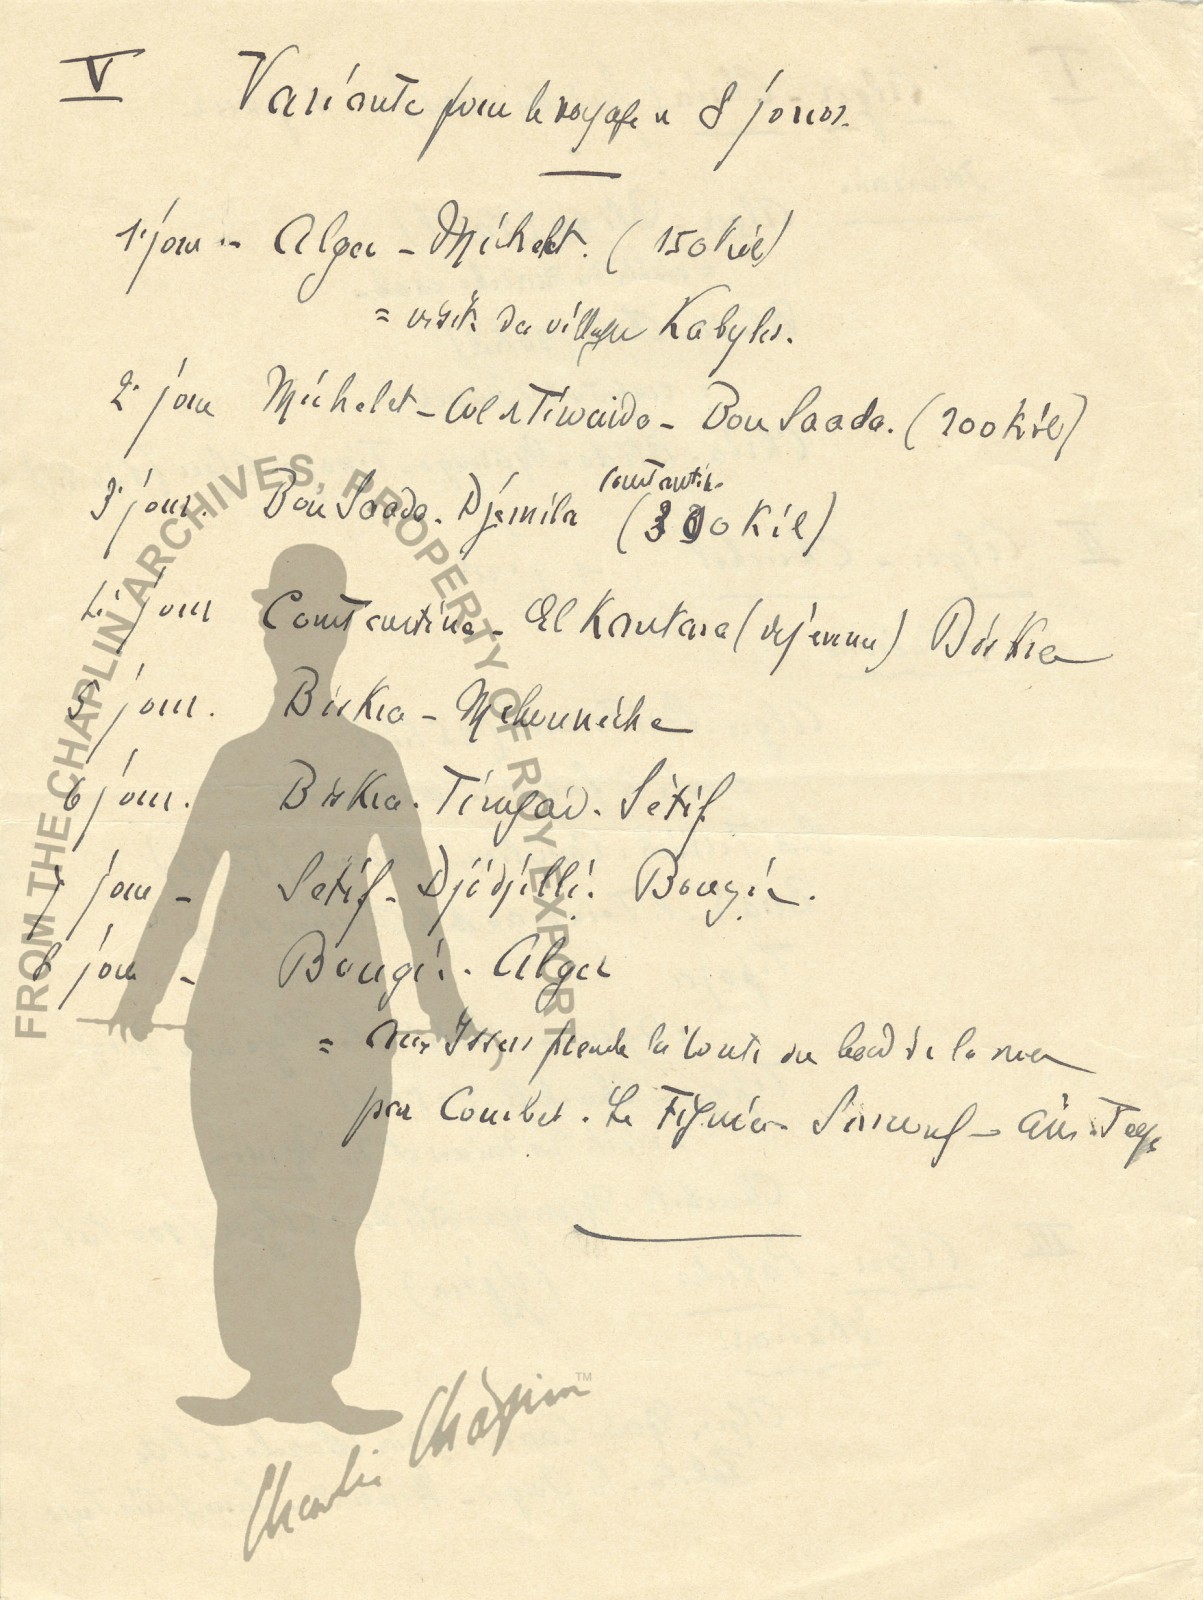 V Variante pour le voyage de 8 jours.
1er jour - Alger - Michelet. (150 kil)
= visite du village Kabyles.
2e jour Michelet - Col de Tirourda - Bou Saada. (200 kil)
3e jour. Bou Saada. Djemila Constantine (300 Kil)
4e jour Constantine - El Kantara (déjeuner) Biskra
5 jour. Biskra - Mchounèche
6 jour. Biskra. Timgad. Sétif
7 jour - Sétif - Djidjelli. Bougie.
8 jour - Bougie. Alger
= aux Issers prendre la route du bord de la mer
par Courbet. Le Figuier - - Aïn-Taya
FROM THE CHAPLIN ARCHIVES, PROPERTY OF ROY EXPORT
Charlie Chaplin™